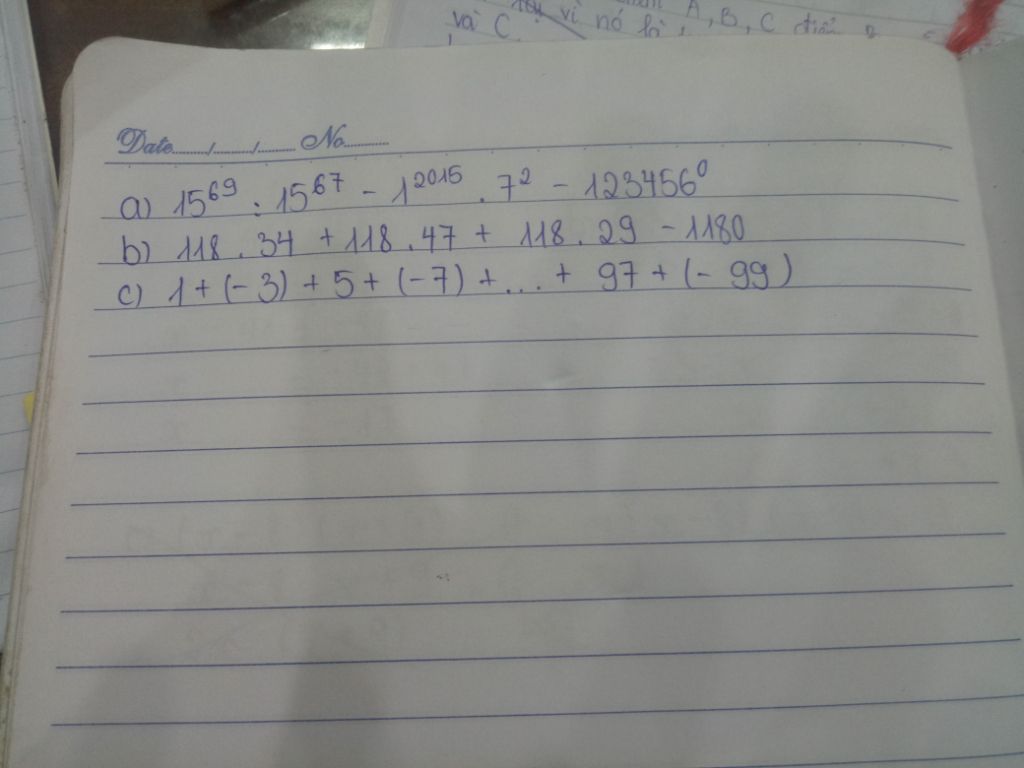 và C vì nó là A, B, C
Date....../....../...... No............
a) 15⁶⁹ : 15⁶⁷ - 1²⁰¹⁵ . 7² - 123456⁰
b) 118 . 34 + 118 . 47 + 118 . 29 - 1180
c) 1 + (- 3) + 5 + (- 7) + ... + 97 + (- 99)